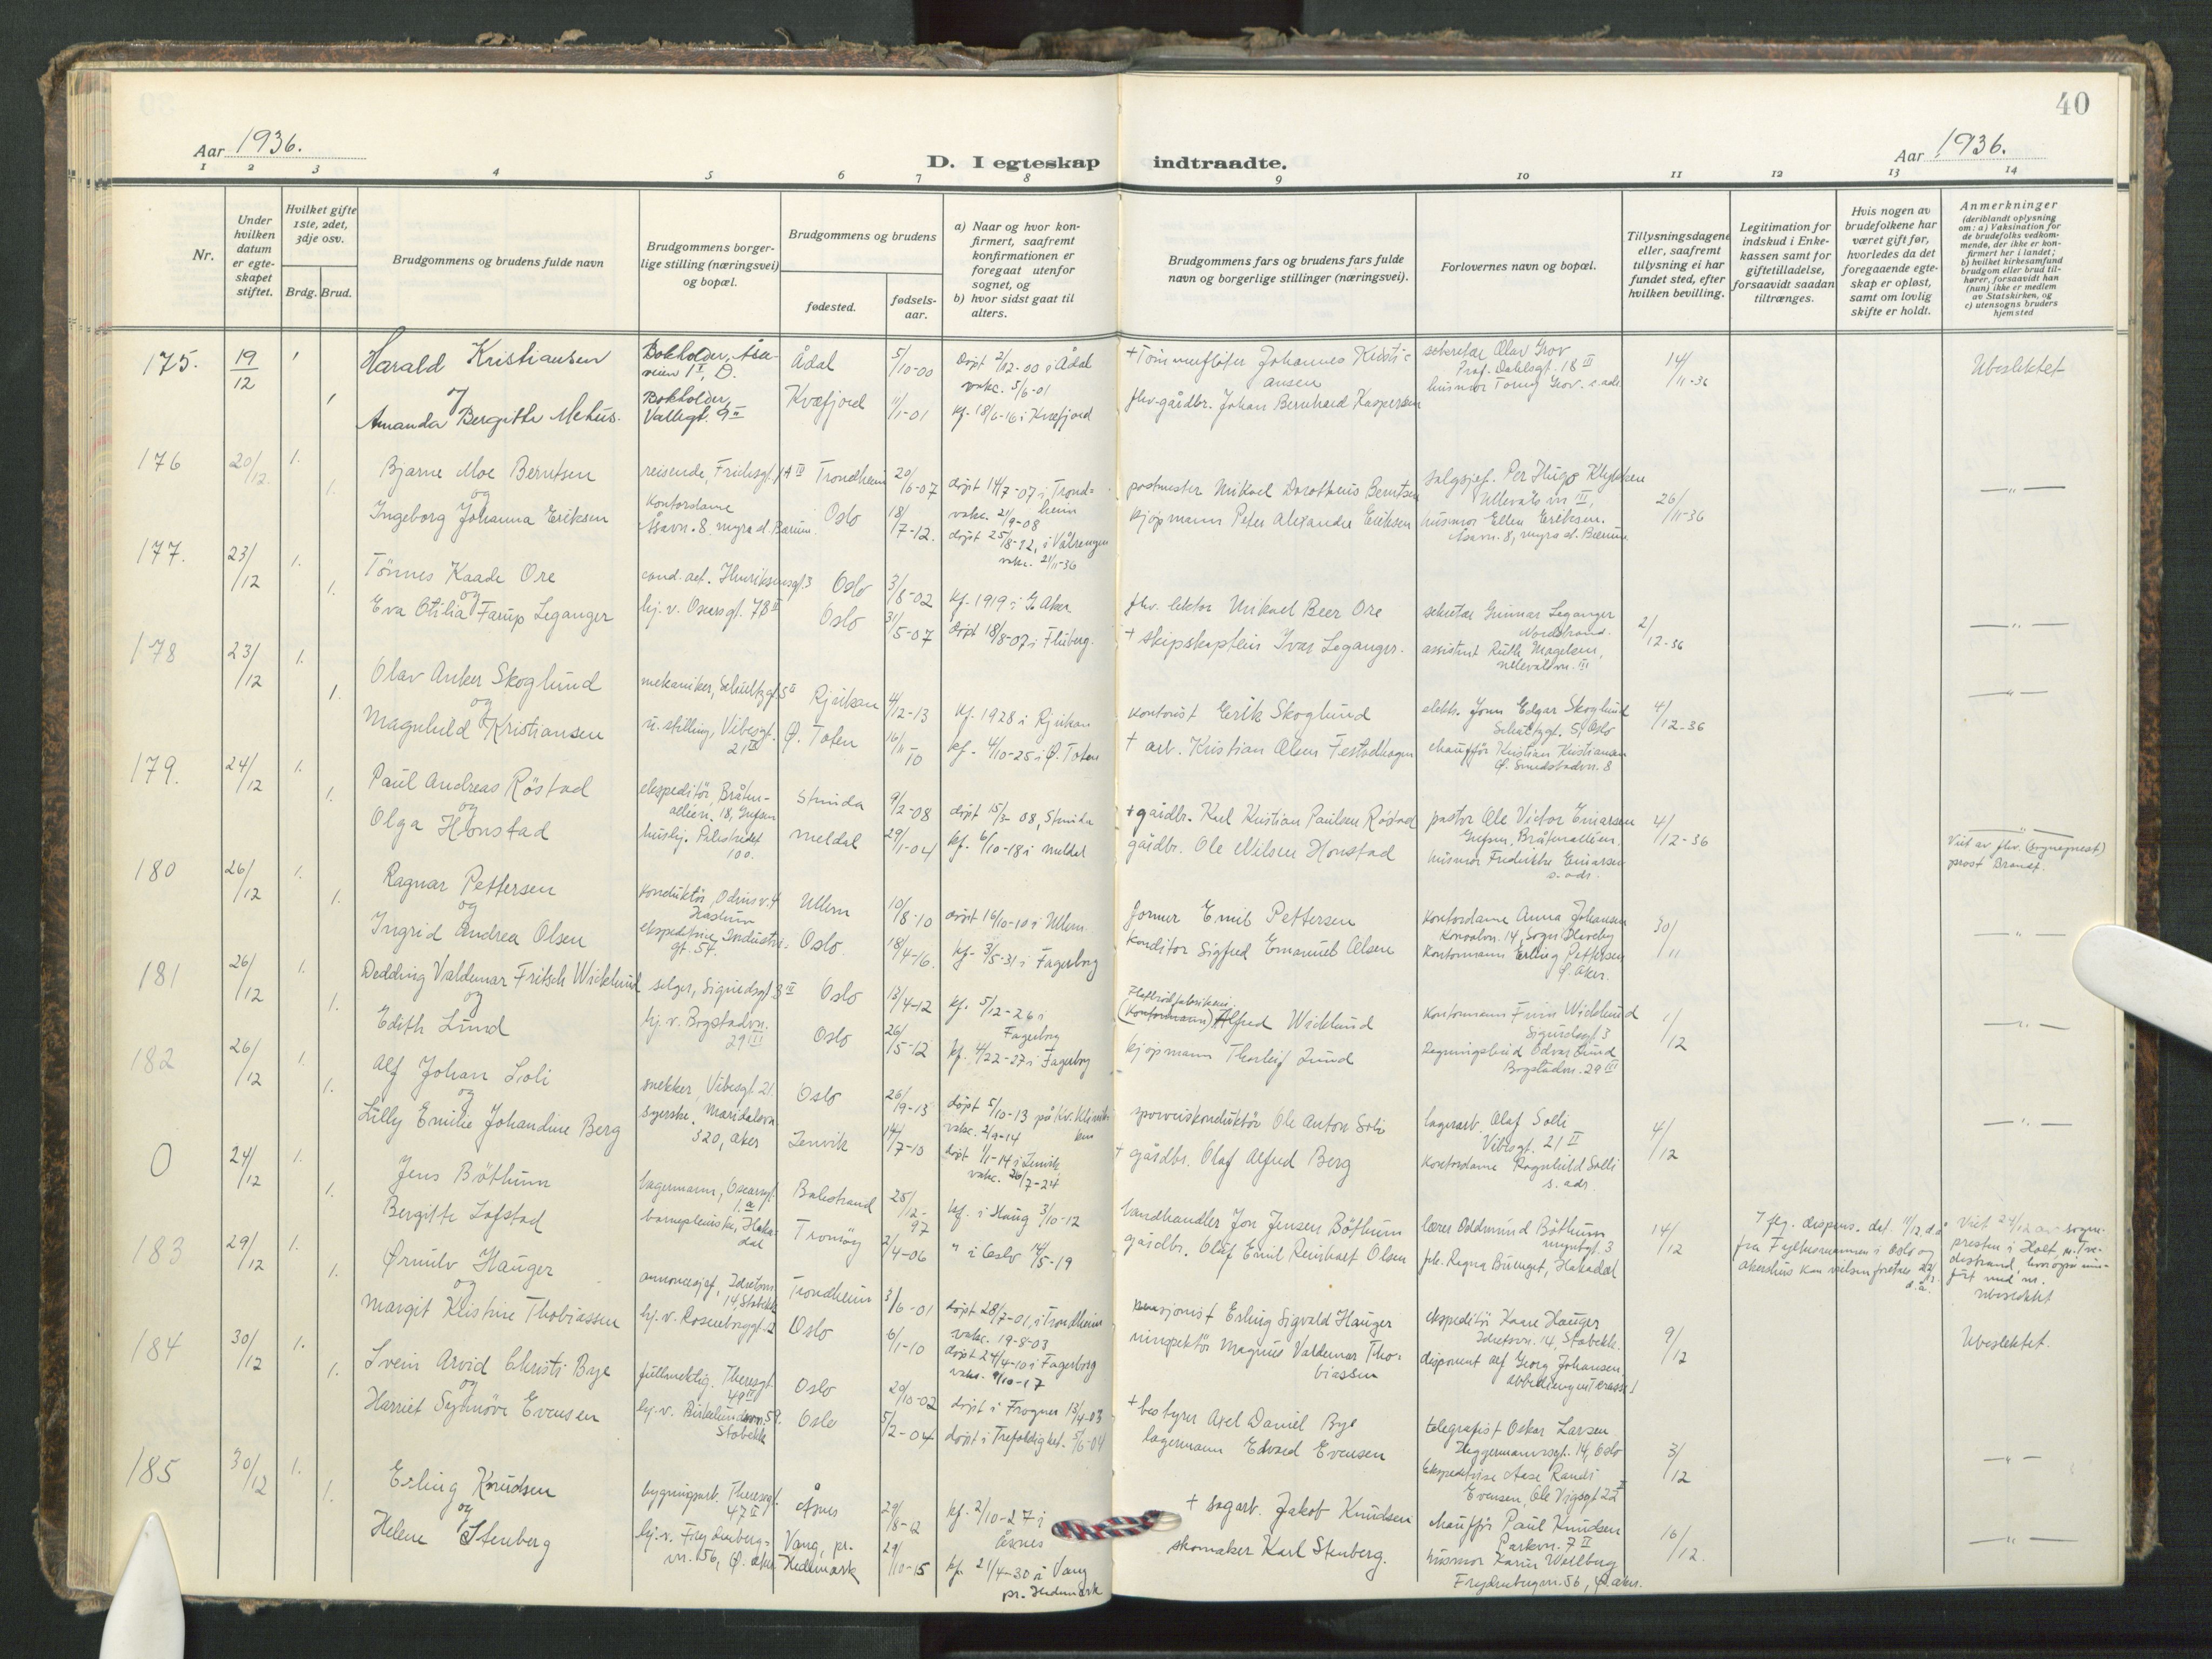 40
Aar 1936.
D. I egteskap indtraadte.
Aar 1936.
1 2 3 4 5 6 7 8 9 10 11 12 13 14
Nr.
Under hvilken datum er egteskapet stiftet.
Hvilket gifte 1ste, 2det, 3dje osv.
Brdg. Brud.
Brudgommens og brudens fulde navn
Brudgommens borgerlige stilling (næringsvei) og bopæl.
Brudgommens og brudens
fødested.
fødselsaar.
a) Naar og hvor konfirmert, saafremt konfirmationen er foregaat utenfor sognet, og
b) hvor sidst gaat til alters.
Brudgommens fars og brudens fars fulde navn og borgerlige stillinger (næringsvei).
Forlovernes navn og bopæl.
Tillysningsdagene eller, saafremt tillysning ei har fundet sted, efter hvilken bevilling.
Legitimation for indskud i Enkekassen samt for giftetilladelse, forsaavidt saadan tiltrænges.
Hvis nogen av brudefolkene har været gift før, hvorledes da det foregaaende egteskap er opløst, samt om lovlig skifte er holdt.
Anmerkninger
(deriblandt oplysning om: a) Vaksination for de brudefolks vedkommende, der ikke er konfirmert her i landet;
b) hvilket kirkesamfund brudgom eller brud tilhører, forsaavidt han (hun) ikke er medlem av Statskirken, og
c) utensogns bruders hjemsted
175. 19/12 1 Harald Kristiansen Bokholder, Åsaveien 1 I, D. Ådal 5/10-00 Døpt 2/12-00 i Ådal vakc. 5/6-01 + Tømmerfløter Johannes Kristiansen sekretær Olav Grov Prof. Dahlsgt. 18 III 14/11-36 Ubeslektet
og
1 Amanda Bergithe Mehus. Bokholder, Vallegt. 9 II Kvæfjord 11/1-01 kf. 18/6-16 i Kvæfjord fhv. gårdbr. Johan Bernhard Kaspersen husmor Torny Grov. s. adr.
176 20/12. 1. Bjarne Moe Berntsen reisende, Frichsgt. 1A III Trondheim 20/6-07 døpt 14/7-07 i Trondheim vakc. 21/9-08 postmester Mikael Dorotheus Berntsen salgssjef. Per Hugo Klykken Ullevålsvn III, 26/11-36 — " —
og
1. Ingeborg Johanna Eriksen kontordame Åsavn. 8. myra st. Bærum. Oslo 18/7-12. døpt 25/8-12, i Vålrengen vakc. 21/11-36 kjøpmann Peter Alexander Eriksen husmor Ellen Eriksen. Åsavn. 8, myra st. Bærum.
177. 23/12 1. Tönnes Kaade Ore cand. act. Henriksensgt. 3 Oslo 3/8-02 kf. 1919 i G. Aker fhv. lektor Mikael Beer Ore sekretær Gunnar Leganger Nordstrand. 2/12-36 — " —
og
1. Eva Otilia Farup Leganger hj. v. Oscarsgt. 78 II Oslo 31/5-07 døpt 18/8-07 i Fluberg. + skipskaptein Ivar Leganger. assistent Ruth Magelsen, Ullevålsvn. III
178 23/12 1. Olav Anker Skoglund mekaniker, Schultzgt. 5 II Rjukan 4/12-13 kf. 1928 i Rjukan kontorist Erik Skoglund elektr. John Edgar Skoglund Schultzgt. 5, Oslo 4/12-36 — " —
og
1. Magnhild Kristiansen u. stilling, Vibesgt. 21 III Ø. Toten 16/11-10 kf. 4/10-25 i Ø. Toten + arb. Kristian Olsen Festadhagen chauffør Kristian Kristiansen Ø. Smedstadvn. 8
179. 24/12 1. Paul Andreas Röstad ekspeditør, Bråtenalléen. 18, Grefsen Strinda 9/2-08 døpt 15/3-08, Strinda + gårdbr. Karl Kristian Paulsen Röstad pastor Ole Victor Einarsen Grefsen, Bråtenalléen. 4/12-36 — " —
og
1. Olga Honstad hushj. Pilestredet 100. Meldal 29/1-04 kf. 6/10-18 i Meldal gårdbr. Ole Nilsen Honstad husmor Fredrikke Einarsen s. adr. Viet av fhv. (sogneprest) prost Brandt.
180 26/12 1. Ragnar Pettersen konduktør, Odins v. 4 Haslum Ullern 10/8-10 døpt 16/10-10 i Ullern. former Emil Pettersen kontordame Anna Johansen Konvalvn. 14, Sogn Haveby 30/11 — " —
og
1. Ingrid Andrea Olsen ekspeditrise, Industrigt. 54. Oslo. 18/4-16. kf. 3/5-31 i Fagerborg konditor Sigfred Emanuel Olsen kontormann Erling Pettersen Ø. Aker.
181 26/12 1. Dedding Valdemar Fritsch Wicklund selger, Sigurdsgt 3 III Oslo 13/4-12 kf. 5/12-26 i Fagerborg (kontormann) Alfred Wicklund kontormann Finn Wicklund Sigurdsgt 3 1/12 — " —
og
1. Edith Lund hj. v. Bogstadvn. 29 III Oslo 26/5-12 kf. 4/22-27 i Fagerborg kjøpmann Thorleif Lund Regningsbud Odvar Lund Bogstadvn. 29 III
182 26/12 1. Alf Johan Soli snekker, Vibesgt. 21. Oslo 26/9-13 døpt 5/10-13 på Kv. Klinikken vakc. 2/9-14 sporveiskonduktør Ole Anton Soli lagerarb. Olaf Solli Vibesgt. 21 II 4/12 — " —
og
1. Lilly Emilie Johandine Berg syerske. Maridalsvn 320, Aker Lenvik 14/7-10 døpt 1/1-14 i Lenvik vakc. 26/7-24 + gårdbr. Olaf Alfred Berg kontordame Ragnhild Solli s. adr.
0 24/12 1. Jens Böthun lagermann, Oscarsgt. 1 a Balestrand 25/12-97 kf. i Haug 3/10-12 landhandler Jon Jensen Böthun lærer Oddmund Böthun myntgt. 3 14/12 Viet 24/12 av sognepresten i Holt,
1. Bergitte Lofstad barnepleierske, Hakadal Tromøy 2/4-06 " i Oslo 14/5-19 gårdbr. Oluf Emil Reinhart Olsen frk. Ragna Buenget, Hakadal ubeslektet
183 29/12 1. Ørnulv Hauger annoncesjef, Idrettsvn. 14, Stabekk Trondheim 3/6-01 døpt 28/7-01, i Trondheim vakc. 19-8-03 pensjonist Erling Sigvald Hauger ekspeditör Kaare Hauger Idrettsvn. 14, Stabekk. 9/12 Ubeslektet.
og
1. Margit Kristine Thobiassen hj. v. Rosenborggt. 2 Oslo 6/1-10 døpt 24/4-10 i Fagerborg vakc. 9/10-17 inspektör Magnus Valdemar Thobiassen disponent Alf Georg Johansen, Abbediengen Terasse 1
184 30/12 1. Svein Arvid Christi Bye fullmektig. Theresgt. 49 III Oslo 20/10-02 døpt i Frogner 13/4-03 + bestyrer Axel Daniel Bye telegrafist Oskar Larsen Heggermannsgt. 14, Oslo 3/12 — " —
og
1. Harriet Synnöve Evensen hj. v. Birkelundsvn. 59. Stabekk Oslo 5/2-04 døpt i Trefoldighet. 5/6-04 lagermann Edvard Evensen Ekspeditrise Aase Randi Evensen, Ole Vigsgt 22 I
185 30/12 1. Erling Knudsen bygningsarb. Theresgt. 47 II Åsnes 29/8-12 kf. 2/10-27 i Åsnes + sagarb. Jakob Knudsen chauffør Paul Knudsen Parkvn. 7 II 16/12. — " —
og
1. Helene Stenberg hj. v. Frydenbergvn. 156, Ø. Aker Vang, pr. Hedemark 29/10-15 kf. 21/4-30 i Vang pr. Hedemark skomaker Karl Stenberg. husmor Karin Wellberg Frydenbergvn. 56, Ø. Aker.